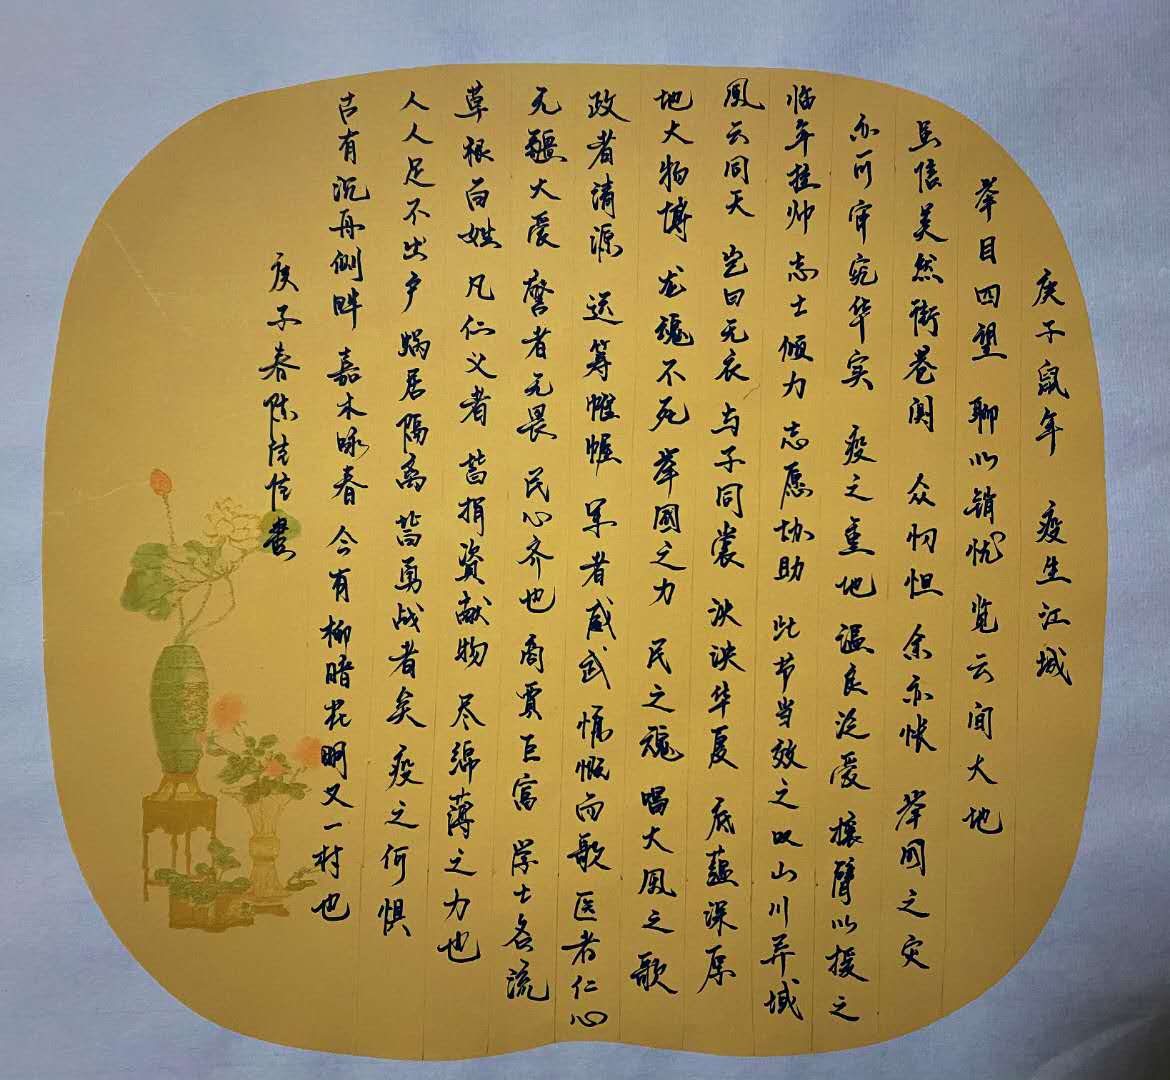 庚子鼠年 疫生江城
举目四望 聊以销忧 览云间大地
虽信美然街巷阒 众忉怛 余亦怅 举国之灾
亦可审究华实 疫之重地 温良泛爱 攘臂以援之
临年挂帅 志士倾力 志愿协助 此节当效之 叹山川异域
风云同天 岂曰无衣 与子同裳 泱泱华夏 底蕴深厚
地大物博 龙魂不死 举国之力 民之魂 唱大风之歌
政者清源 运筹帷幄 军者威武 慷慨而歌 医者仁心
无疆大爱 警者无畏 民心齐也 商贾巨富 学士名流
草根百姓 凡仁义者 皆捐资献物 尽绵薄之力也
人人足不出户 蜗居隔离 皆勇战者矣 疫之何惧
古有沉舟侧畔 嘉木咏春 今有柳暗花明又一村也
庚子春陈 书